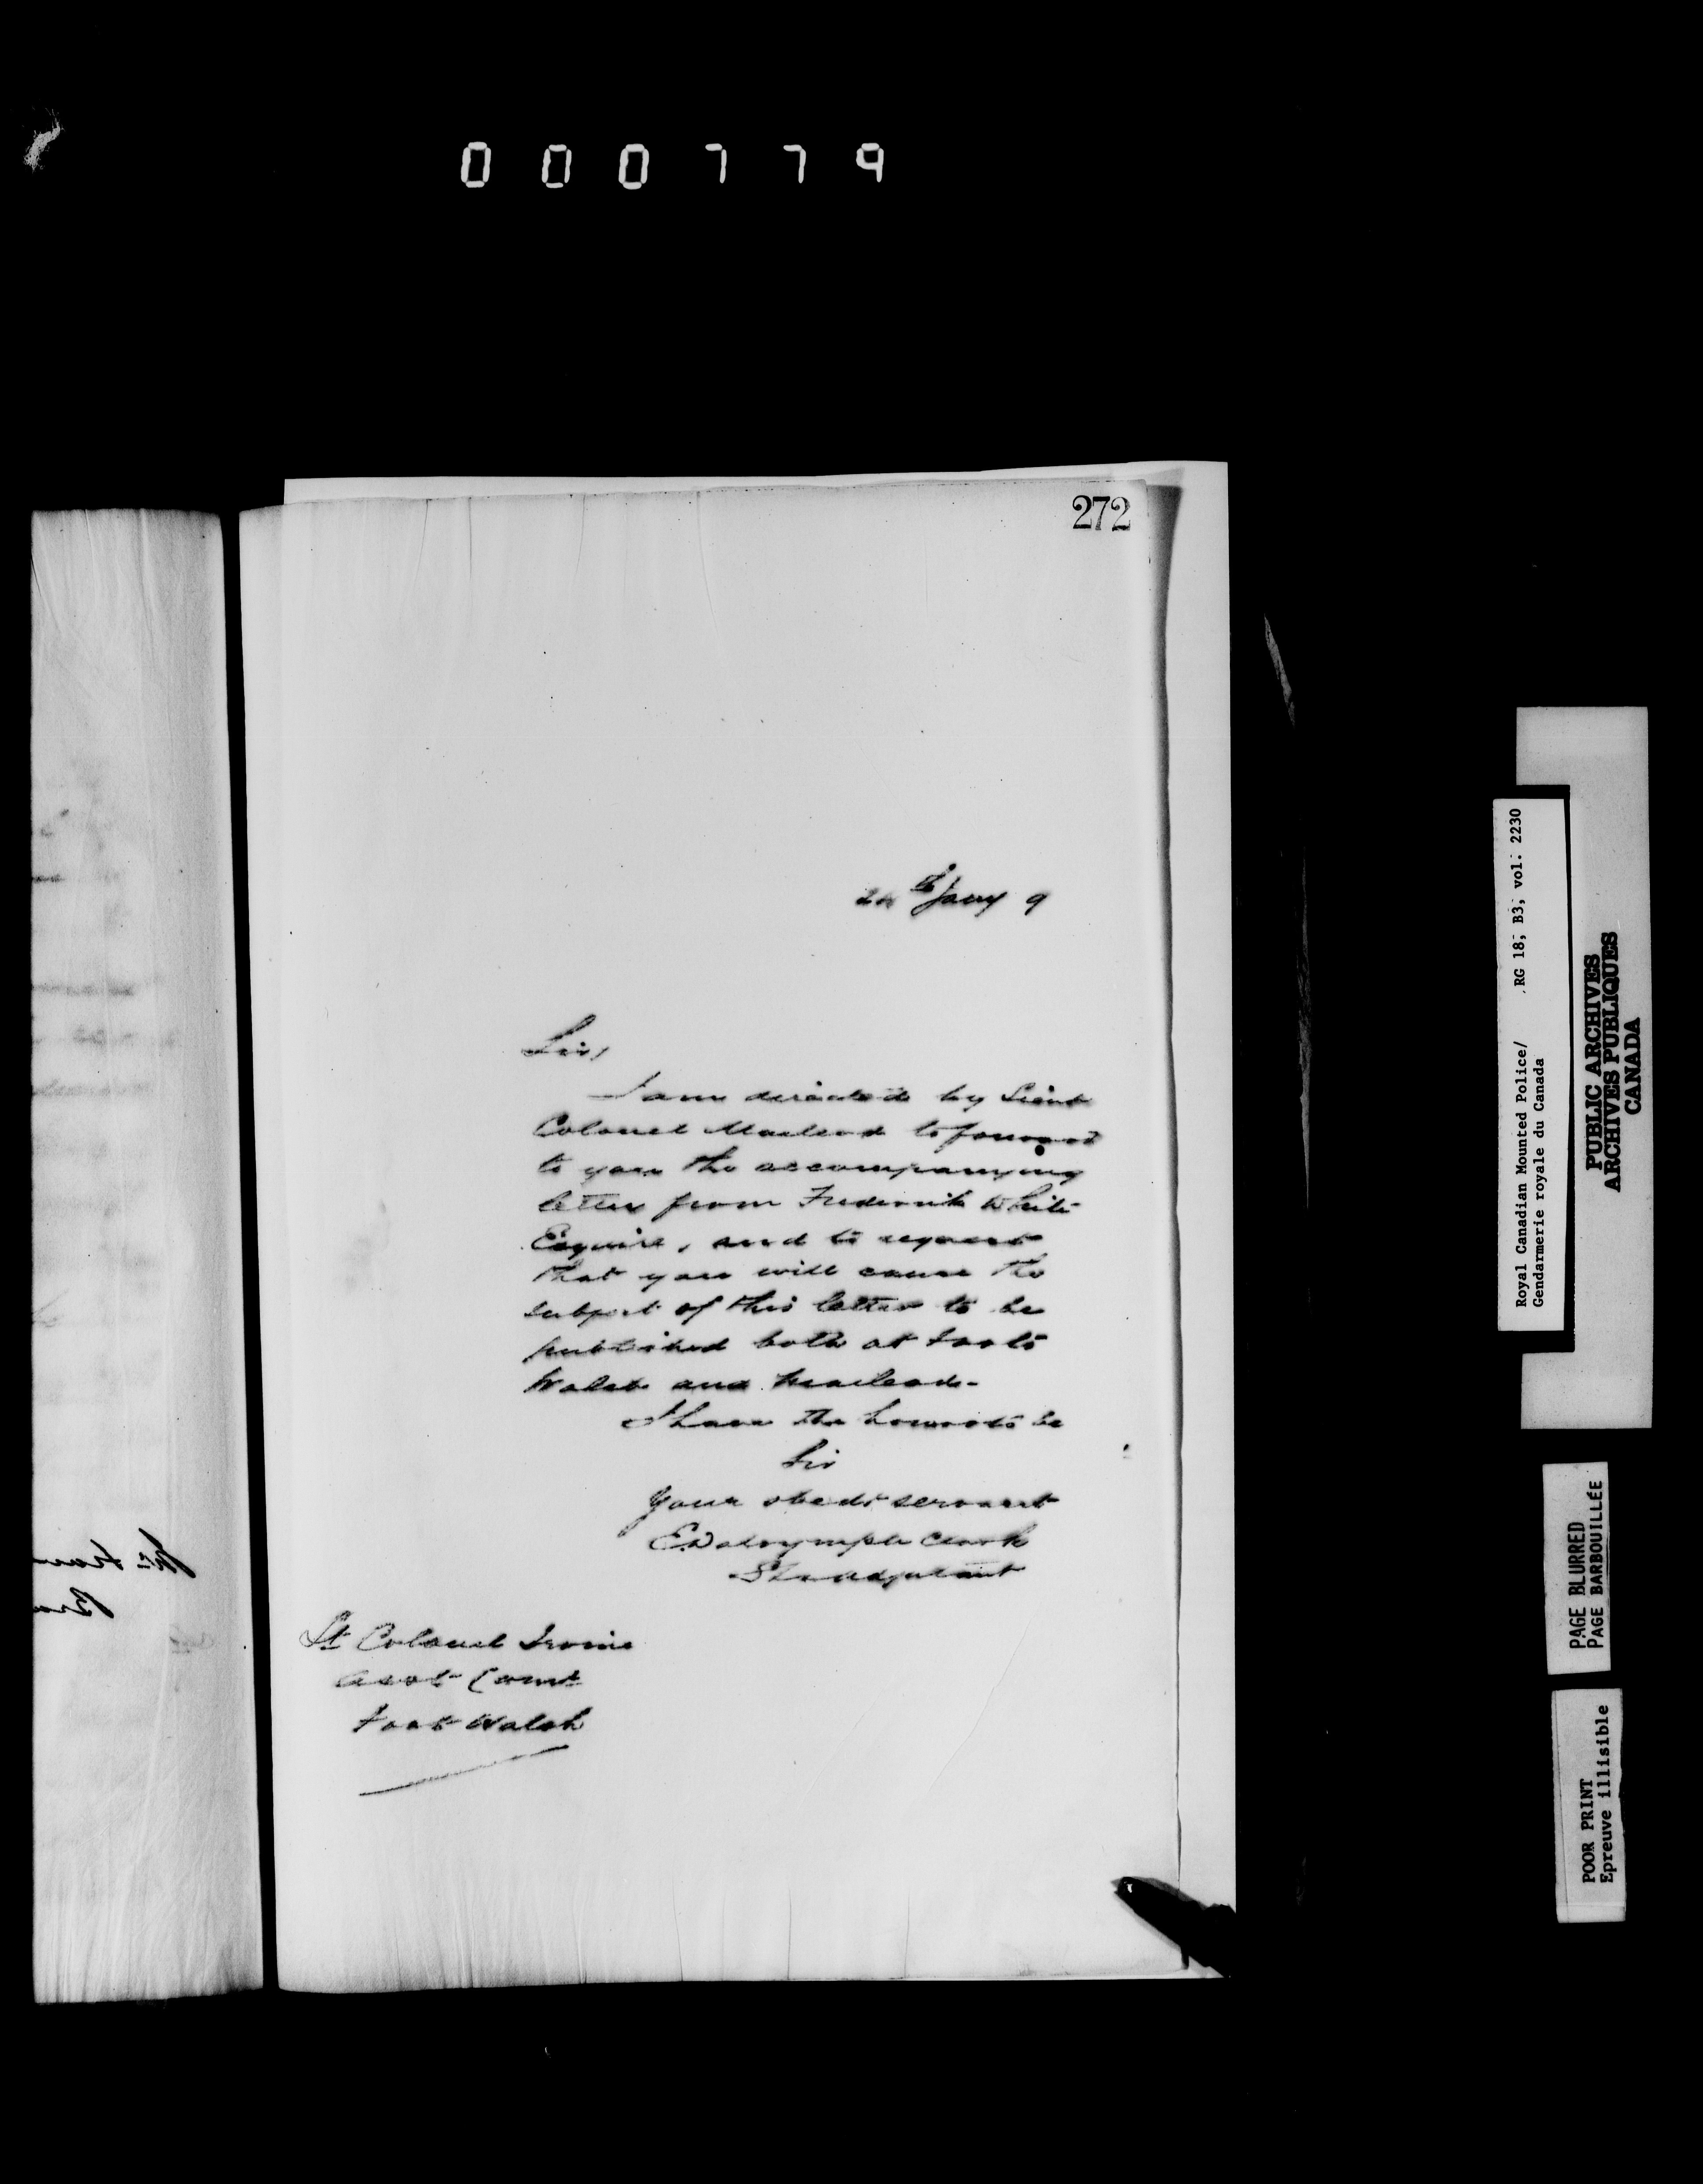 000779
272
24th Jany 9
Sir,
I am directed by Lieut
Colonel Macleod to forward
to you the accompanying
letter from Frederick White
Esquire, and to request
that you will cause the
subject of this letter to be
published both at Forts
Walsh and Macleod-
I have the honor to be
Sir
Your obedt servant
E Dalrymple Clark
Supt & Adjutant
Lt Colonel Irvine
Asst Comr
Fort Walsh
Royal Canadian Mounted Police/ RG 18, B3, vol. 2230
Gendarmerie royale du Canada
PUBLIC ARCHIVES
ARCHIVES PUBLIQUES
CANADA
PAGE BLURRED
PAGE BARBOUILLÉE
POOR PRINT
Epreuve illisible